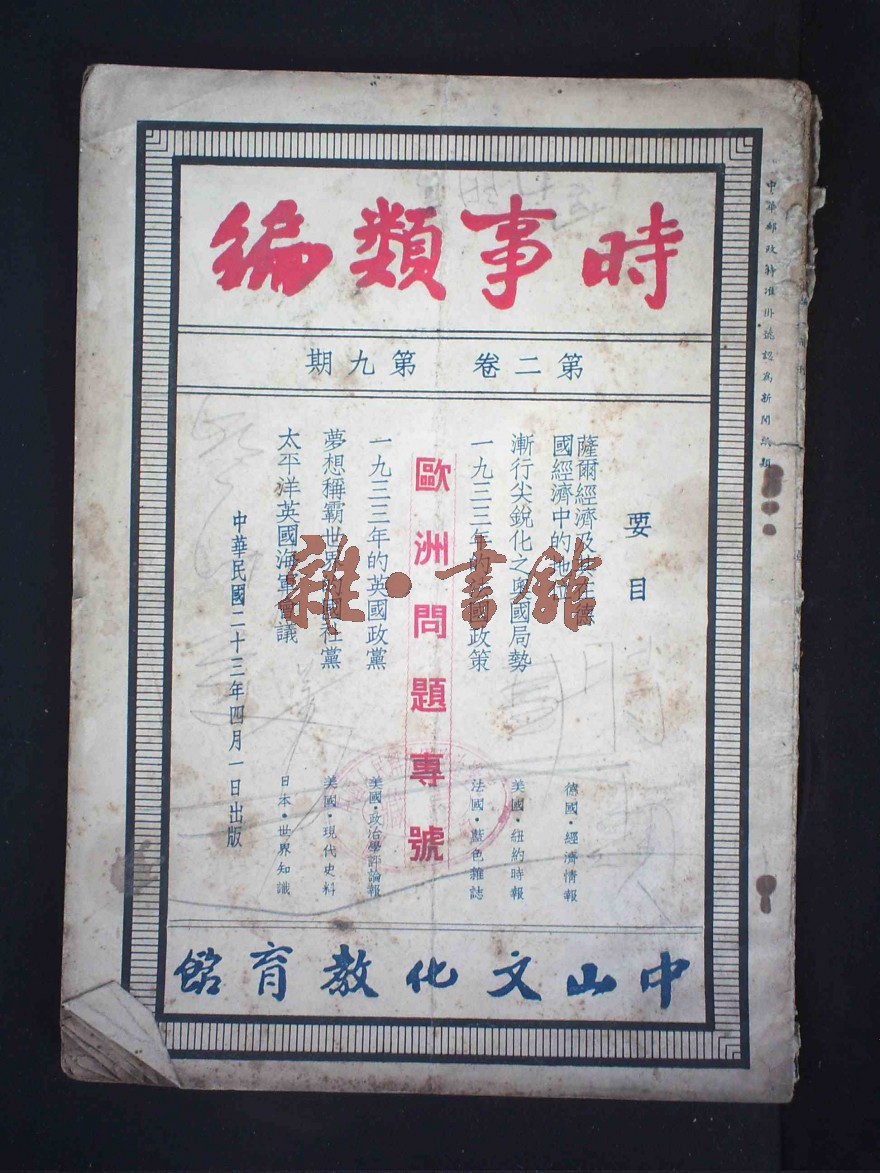 時事類編
第二卷 第九期
要目
薩爾經濟及其在德
國經濟中的地位
德國·經濟情報
漸行尖銳化之奧國局勢
美國·紐約時報
一九三三年的英國政策
法國·藍色雜誌
歐洲問題專號
一九三三年的英國政黨
美國·政治學評論報
夢想稱霸世界的國社黨
美國·現代史料
太平洋英國海軍會議
日本·世界知識
中華民國二十三年四月一日出版
中山文化教育館
中華郵政特准掛號認爲新聞紙類
雜·書館